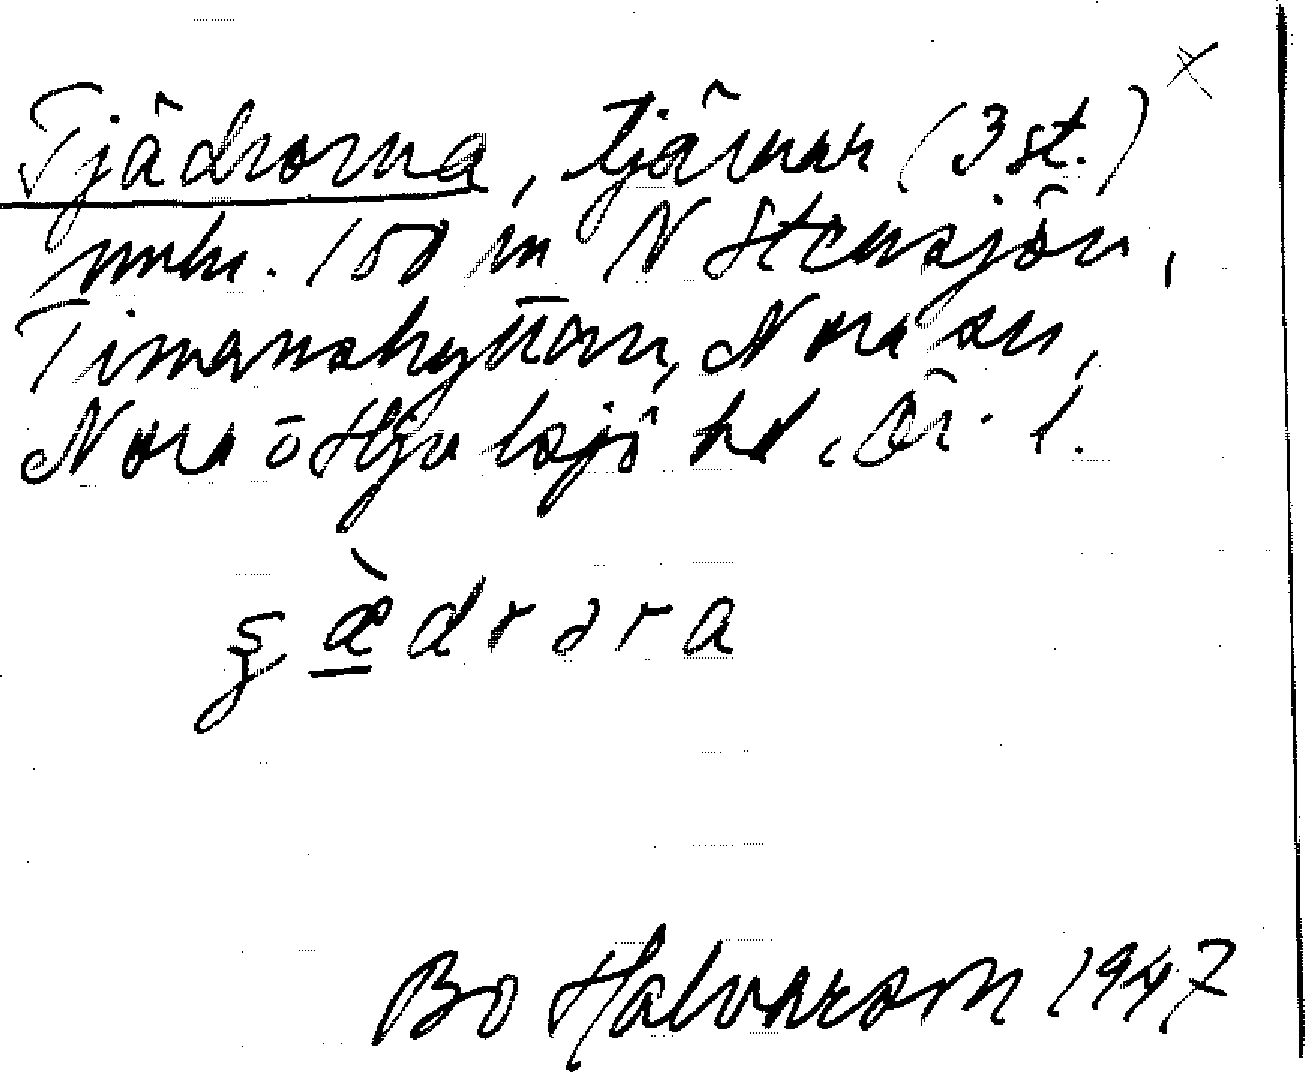 Tjädrorna, tjärnar (3 st.)
omkr. 150 m N Stensjön,
Timanshyttan, Nora sn,
Nora o Hjulsjö hd. Ör. l.
ædrəra
Bo Halvarson 1947